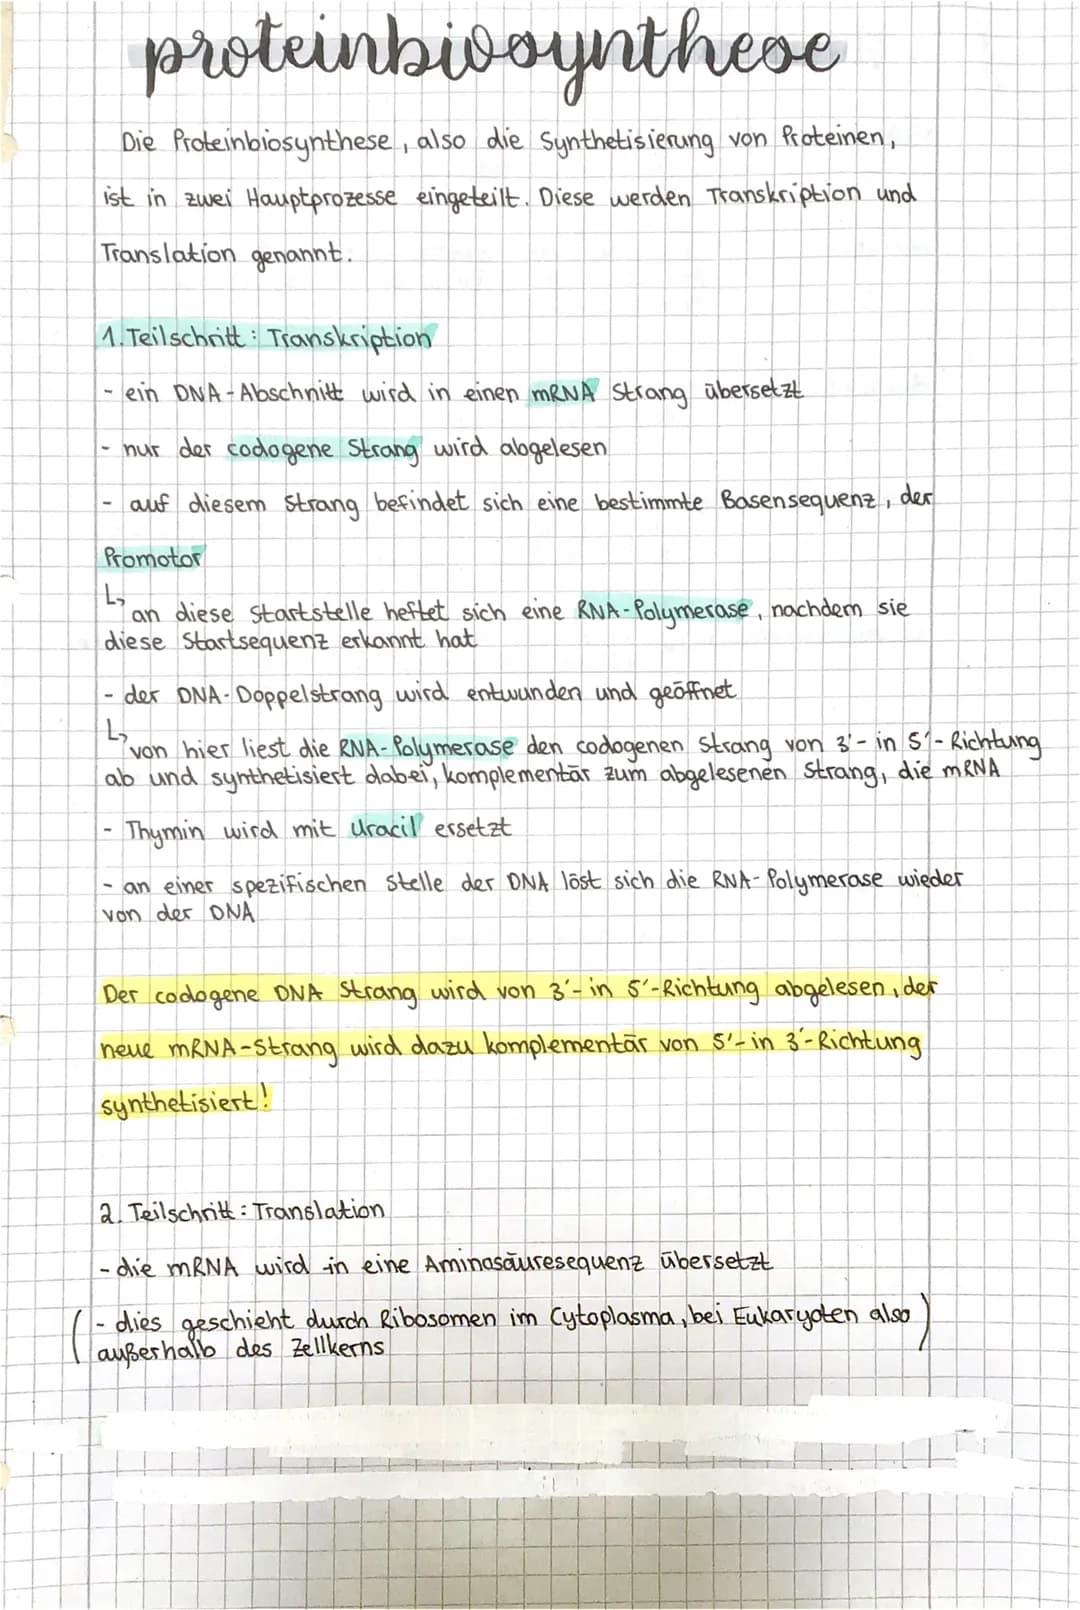 proteinbiosynthese
Die Proteinbiosynthese, also die Synthetisierung von Proteinen,
ist in zwei Hauptprozesse eingeteilt. Diese werden Transkription und
Translation genannt.
1. Teilschritt: Transkription
- ein DNA-Abschnitt wird in einen mRNA Strang übersetzt
- nur der codogene Strang wird abgelesen
- auf diesem Strang befindet sich eine bestimmte Basensequenz, der
Promotor
↳ an diese Startstelle heftet sich eine RNA-Polymerase, nachdem sie
diese Startsequenz erkannt hat
- der DNA-Doppelstrang wird entwunden und geöffnet
↳ von hier liest die RNA-Polymerase den codogenen Strang von 3'- in 5'-Richtung
ab und synthetisiert dabei, komplementär zum abgelesenen Strang, die mRNA
- Thymin wird mit Uracil ersetzt
- an einer spezifischen Stelle der DNA löst sich die RNA-Polymerase wieder
von der DNA
Der codogene DNA Strang wird von 3'- in 5'-Richtung abgelesen, der
neue mRNA-Strang wird dazu komplementär von 5'- in 3'-Richtung
synthetisiert!
2. Teilschritt: Translation
- die mRNA wird in eine Aminosäuresequenz übersetzt
(- dies geschieht durch Ribosomen im Cytoplasma, bei Eukaryoten also
außerhalb des Zellkerns)